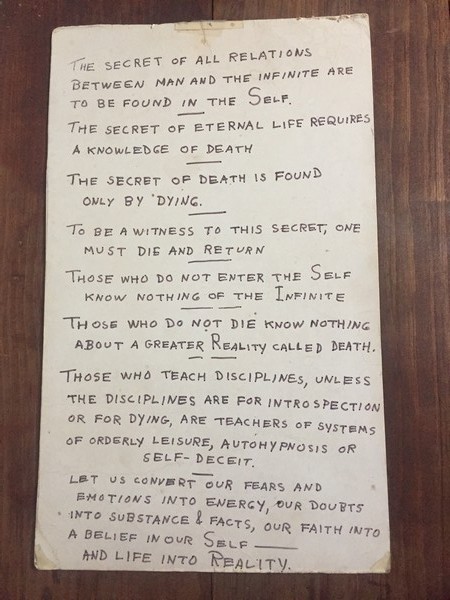 THE SECRET OF ALL RELATIONS
BETWEEN MAN AND THE INFINITE ARE
TO BE FOUND IN THE SELF.
THE SECRET OF ETERNAL LIFE REQUIRES
A KNOWLEDGE OF DEATH
THE SECRET OF DEATH IS FOUND
ONLY BY DYING.
TO BE A WITNESS TO THIS SECRET, ONE
MUST DIE AND RETURN
THOSE WHO DO NOT ENTER THE SELF
KNOW NOTHING OF THE INFINITE
THOSE WHO DO NOT DIE KNOW NOTHING
ABOUT A GREATER REALITY CALLED DEATH.
THOSE WHO TEACH DISCIPLINES, UNLESS
THE DISCIPLINES ARE FOR INTROSPECTION
OR FOR DYING, ARE TEACHERS OF SYSTEMS
OF ORDERLY LEISURE, AUTOHYPNOSIS OR
SELF-DECEIT.
LET US CONVERT OUR FEARS AND
EMOTIONS INTO ENERGY, OUR DOUBTS
INTO SUBSTANCE & FACTS, OUR FAITH INTO
A BELIEF IN OUR SELF —
AND LIFE INTO REALITY.